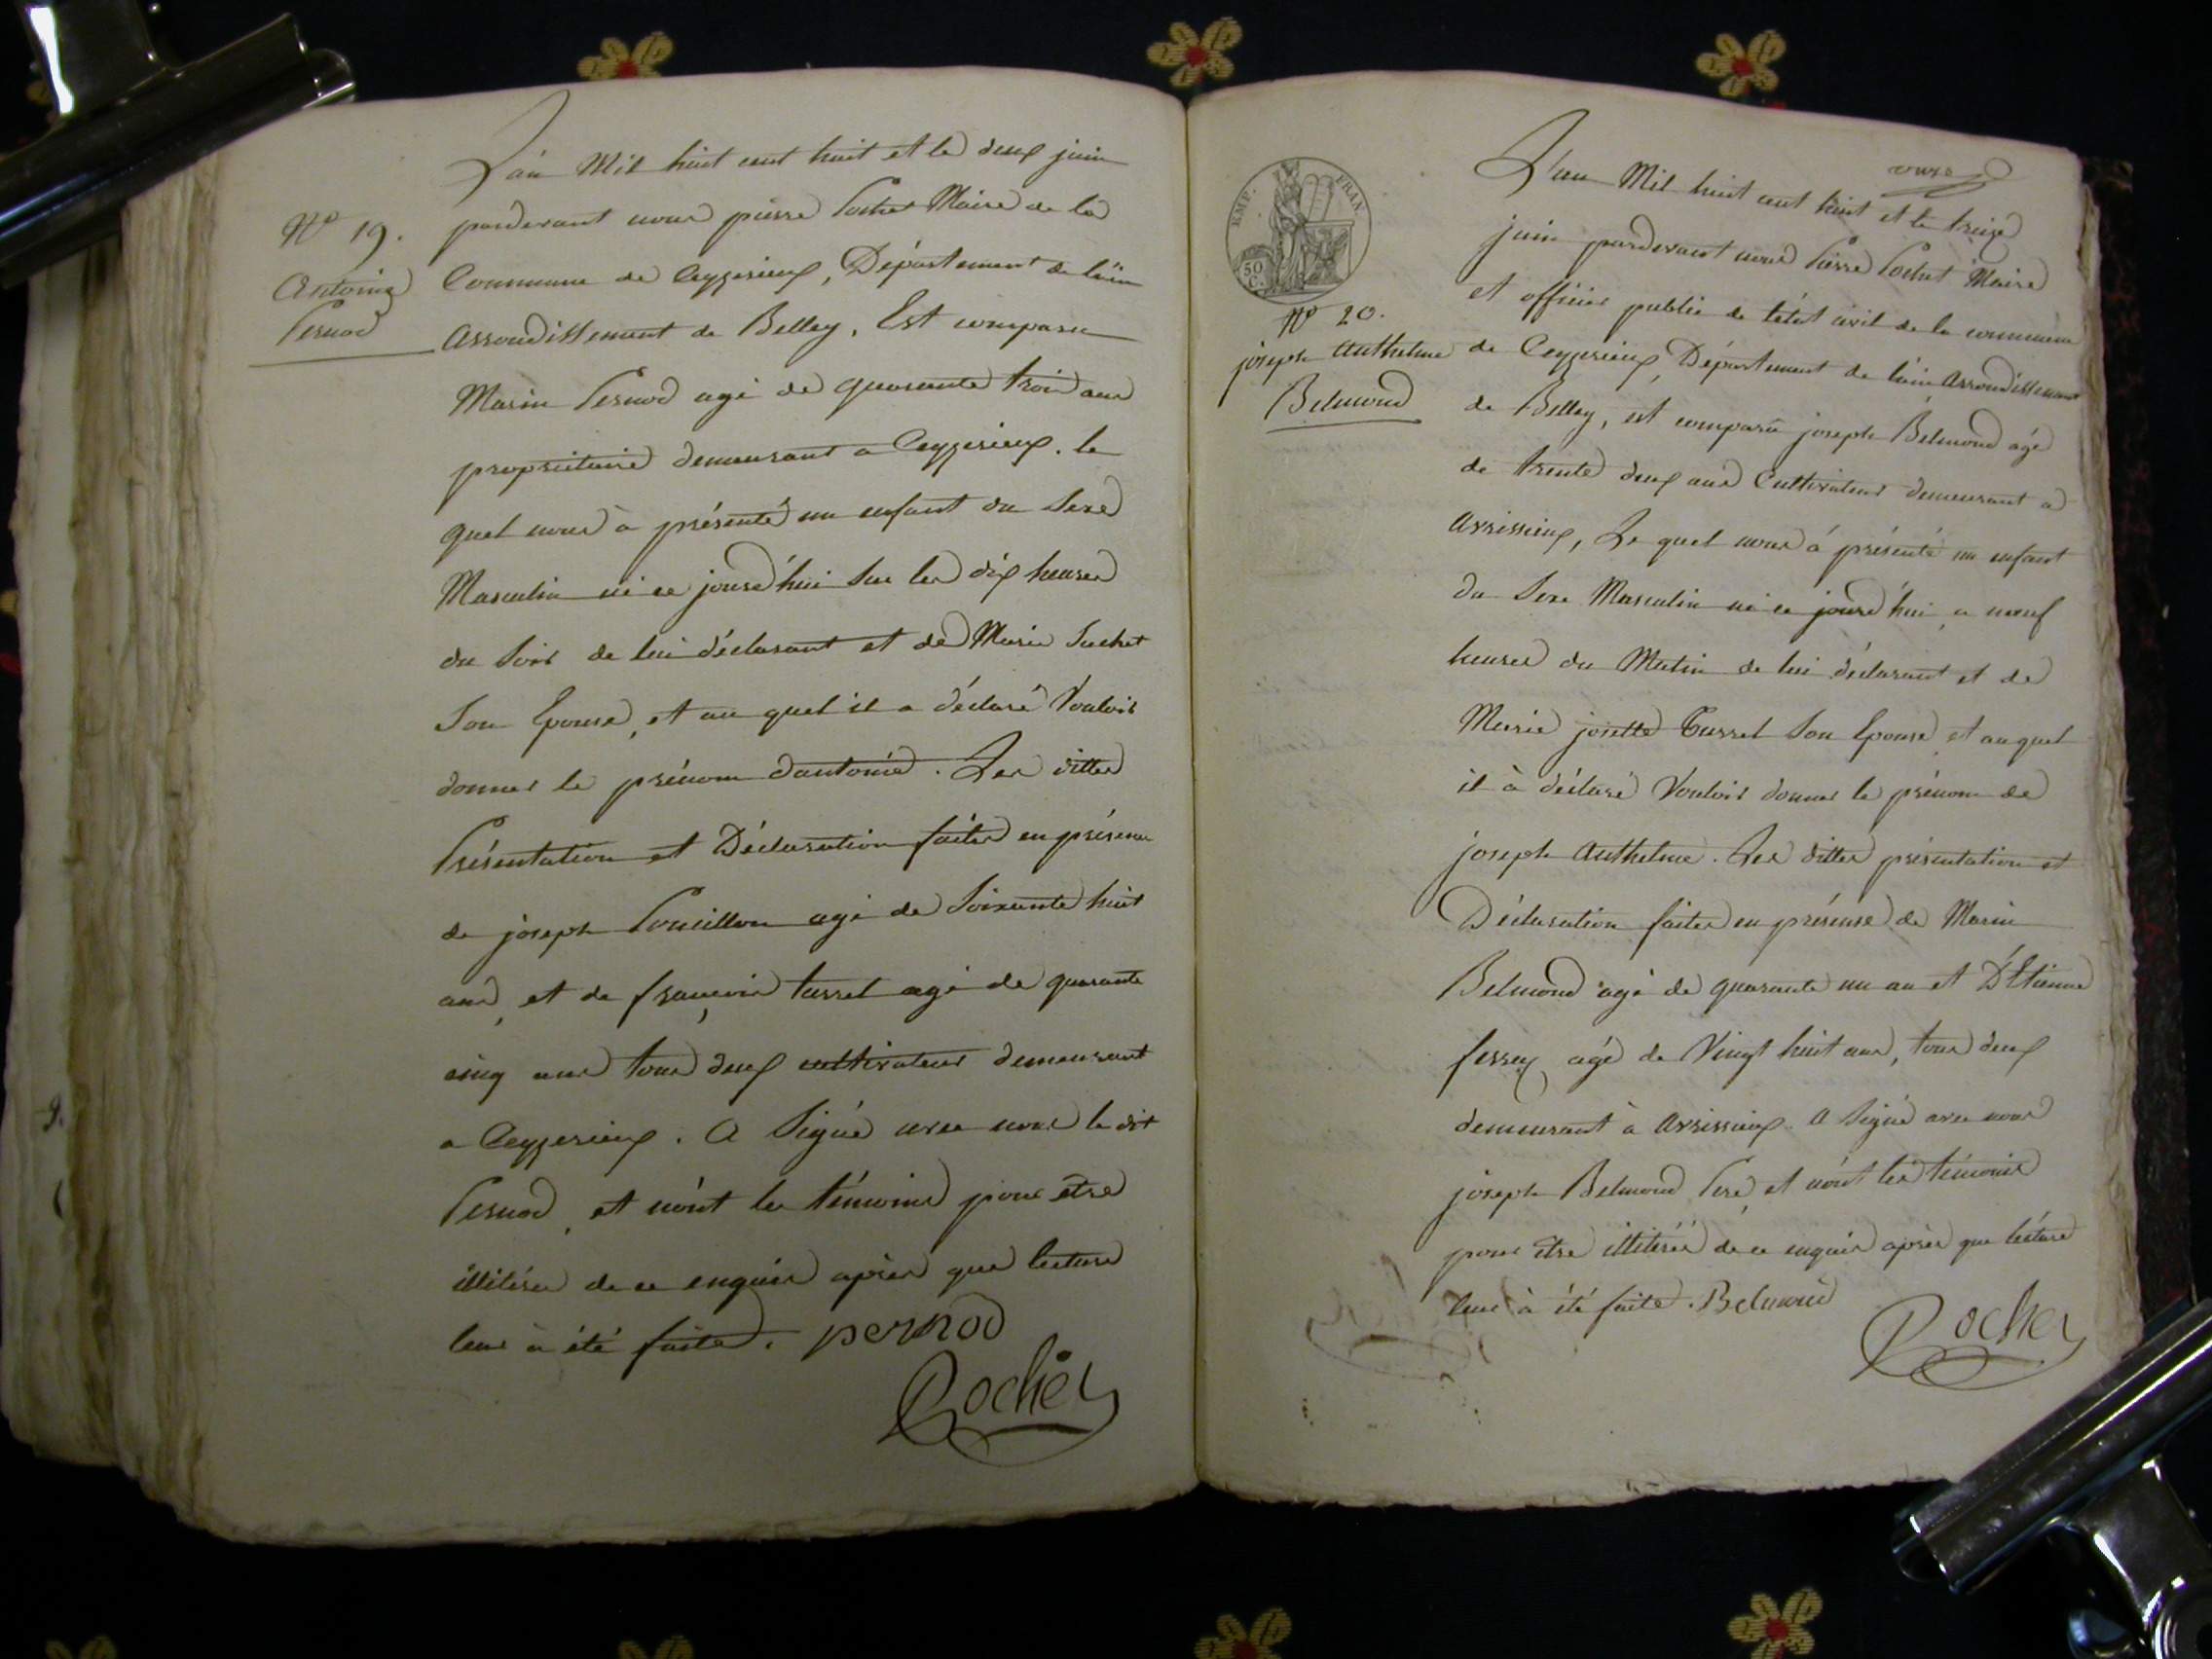 L'an Mil huit cent huit et le deux juin
pardevant nous pierre Pochet Maire de la
Commune de Ceyzerieux, Département de l'ain
Arrondissement de Belley, Est comparu
Marin Pernod agé de quarante trois ans
propriétaire demeurant a Ceyzerieux. le
quel nous à présenté un enfant du Sexe
Masculin né ce jourd'hui Sur les dix heures
du Soir de lui déclarant et de Marie Suchet
Son Epouse, et au quel il a déclaré Vouloir
donner le prénom d'antoine. Les dittes
Présentation et Déclaration faites en présence
de joseph agé de Soixante huit
ans, et de françois tasset agé de quarante
cinq ans tous deux cultivateur demeurant
a Ceyzerieux. A Signé avec nous le dit
Pernod, et n'ont les témoins pour être
illitérés de ce enquis après que lecture
leur à été faite. pernod
Pochet
Nº 19.
Antoine
Pernod
9.
EMP. FRAN.
50
C.
Nº 20.
joseph Anthelme
Belmond
onze
L'an Mil huit cent huit et le treize
juin pardevant nous Pierre Pochet Maire
et officier public de l'état civil de la commune
de Ceyzerieux, Département de l'ain Arrondissement
de Belley, est comparu joseph Belmond agé
de trente deux ans Cultivateur demeurant a
Avrissieux, Le quel nous à présenté un enfant
du Sexe Masculin né ce jourd'hui a neuf
heures du Matin de lui déclarant et de
Marie josette Son Epouse et auquel
il à déclaré Vouloir donner le prénom de
joseph Anthelme. Les dittes présentation et
Déclaration faites en présense de Marin
Belmond agé de quarante un an et D'Etienne
fessey agé de Vingt huit ans, tous deux
demeurant à Avrissieux. A Signé avec nous
joseph Belmond Pere, et n'ont les témoins
pour être illitérés de ce enquis après que lecture
leur à été faite. Belmond
Pochet